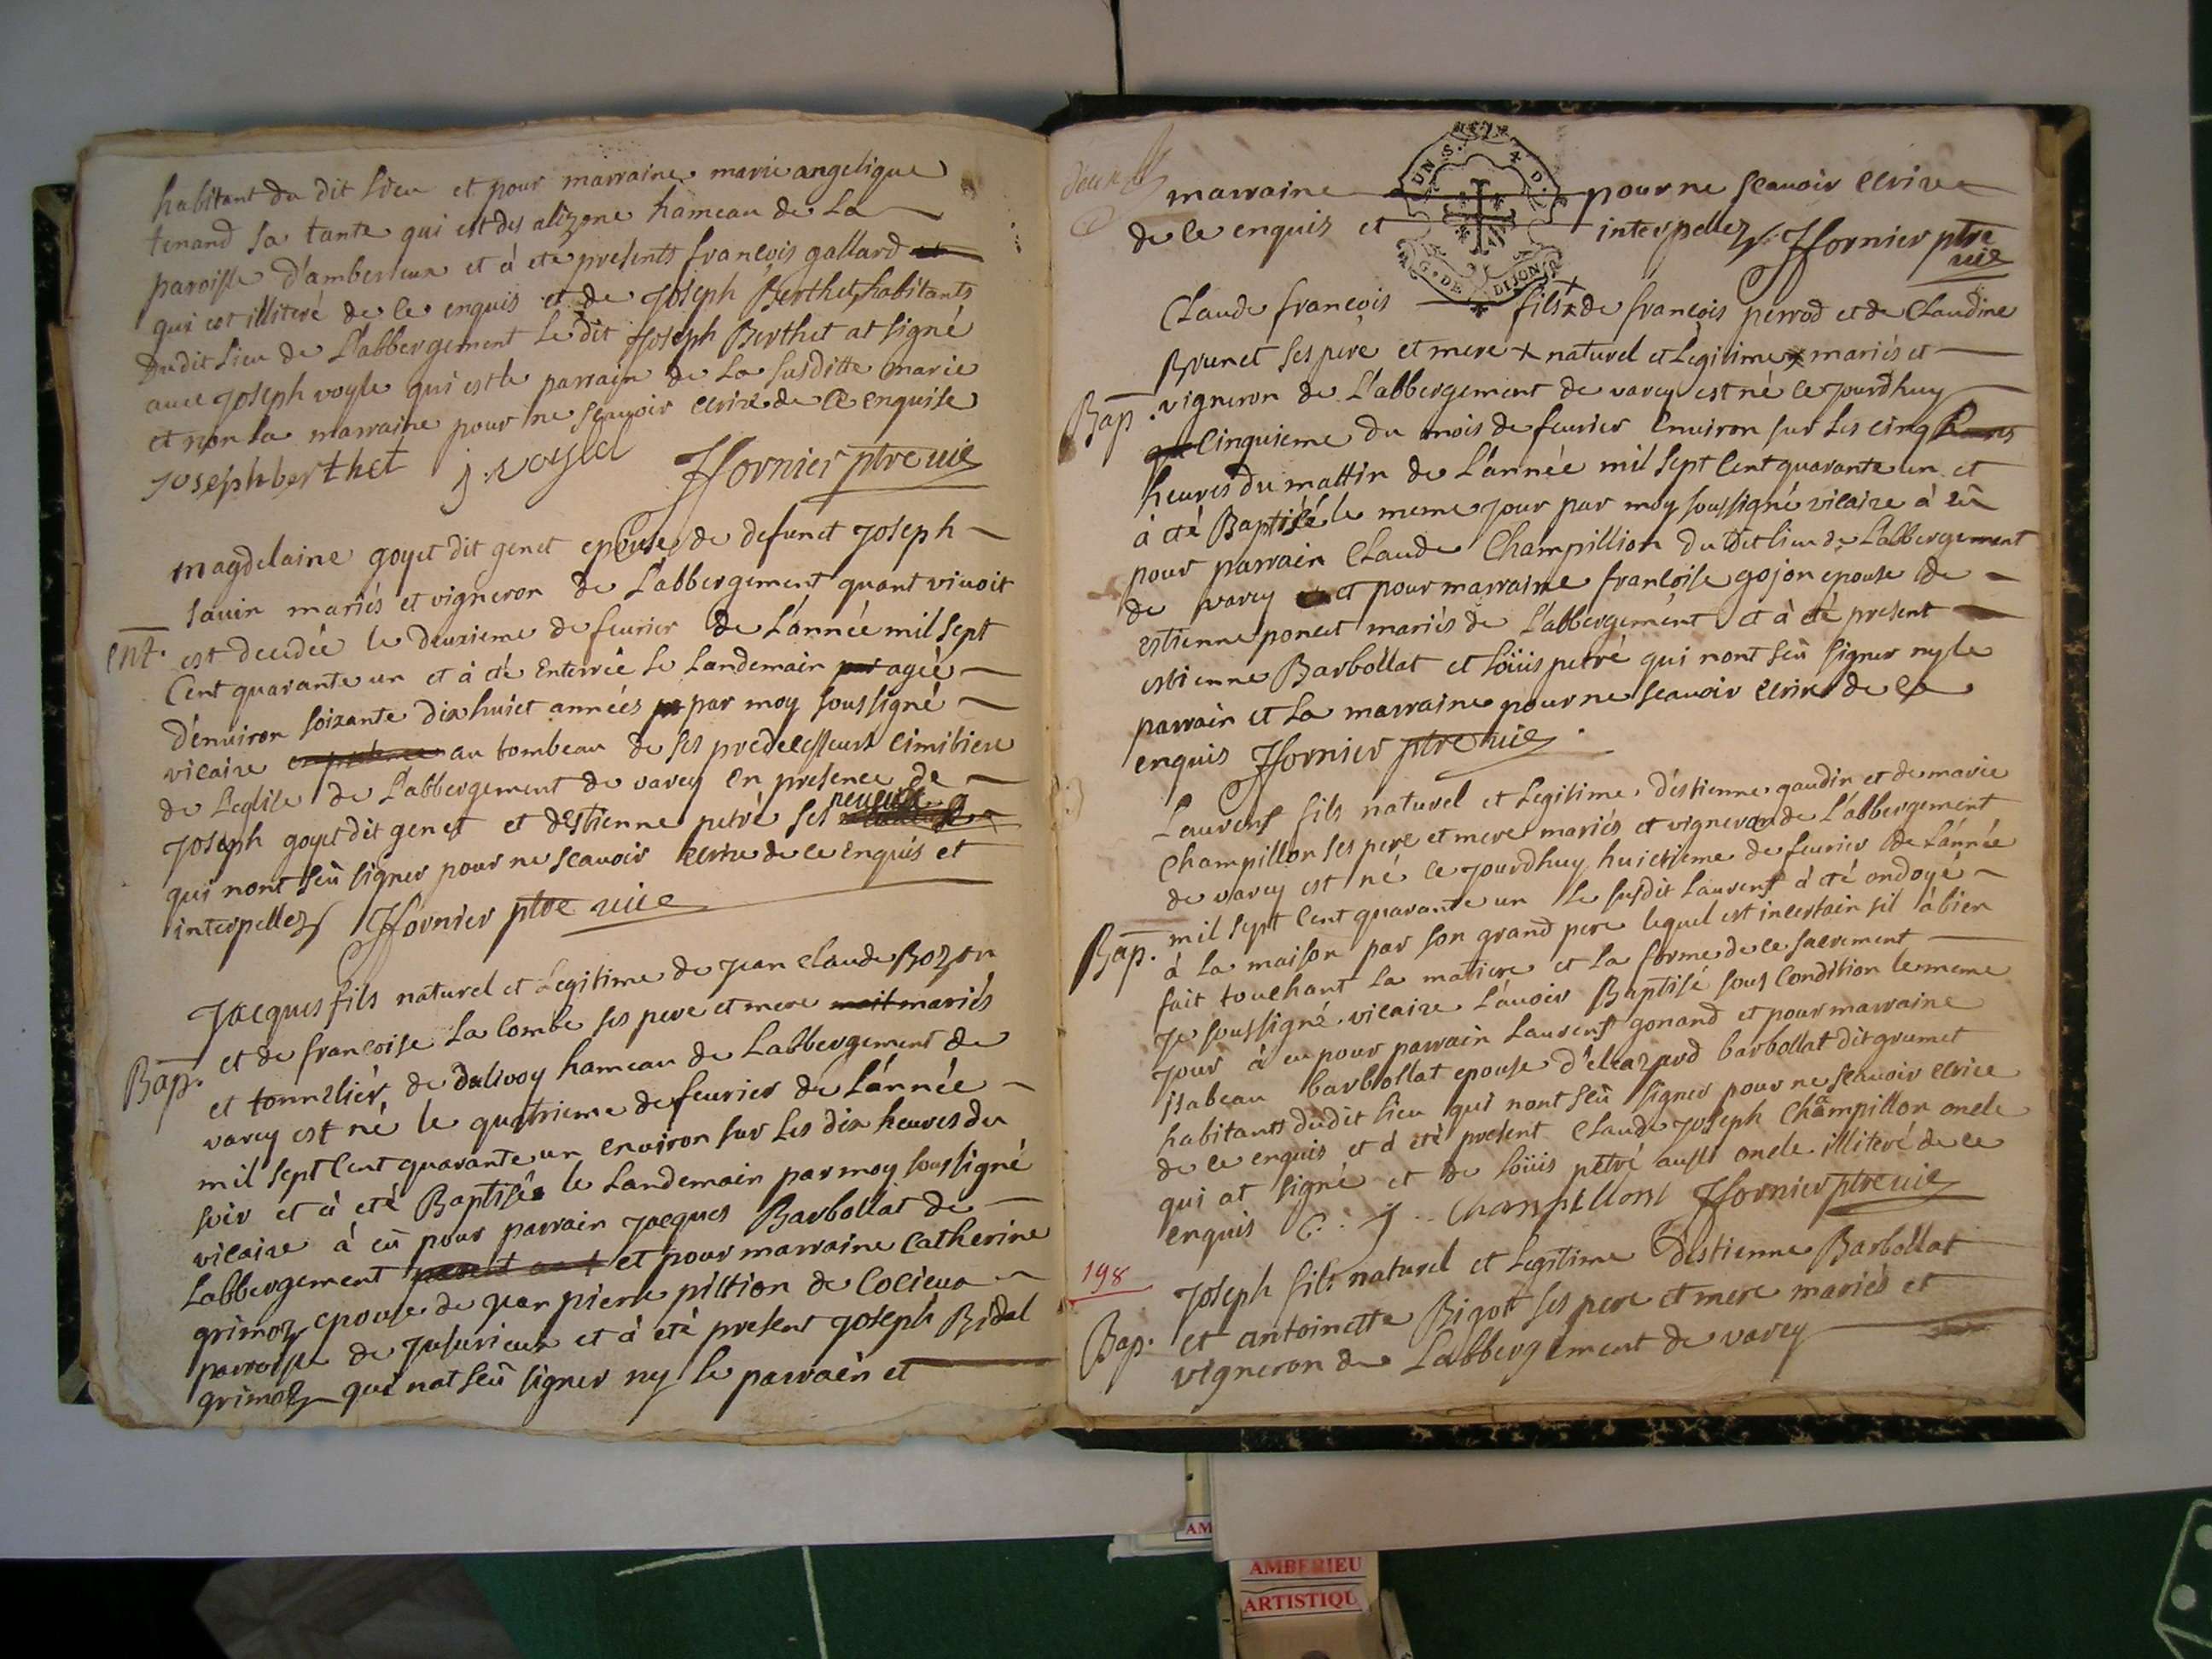 habitant du dit lieu et pour marraine marie angelique
tenand sa tante qui est des alizone hameau de La
paroisse d'amberieux et à eté presents francois gallard et
qui est illiteré de ce enquis et de Joseph Berthet habitants
Dudit lieu de L'abbergement Le dit Joseph Berthet at signé
avec Joseph voyle qui est le parrain de La susditte marie
et non La marraine pour ne scavoir ecrire de ce enquise
Joseph berthet j. voyle fornier ptre vic
magdelaine goyet dit genet epouse de defunct Joseph
savin mariés et vigneron de L'abbergement quant vivoit
Ent. est decedée le deuxieme de fevrier de L'année mil sept
Cent quarante un et à eté Enterrée Le Landemain par agée
d'environ soixante dix huict années par moy soussigné
vicaire au tombeau de ses predecesseurs cimitiere
de Leglise de L'abbergement de varey en presence de
Joseph goyet dit genet et destienne petré ses neveux
qui nont seu signer pour ne scavoir ecrire de ce enquis et
interpellez fornier ptre vic
Jacques fils naturel et Legitime de jean claude Bozon
et de francoise La Combe ses pere et mere mariés
Bap. et tonnelier de Dalivoy hameau de Labbergement de
varey est né le quatrieme de fevrier de L'année
mil sept Cent quarante un environ sur Les dix heures du
soir et à eté Baptisé le Landemain par moy soussigné
vicaire à eu pour parrain jacques Barbollat de
Labbergement et pour marraine Catherine
grimoz epouse de jean pierre pittion de Cocieux
parroisse de jusurieux et à eté present Joseph Bidal
grimoz qui nat seu signer ny le parrain et
marraine pour ne scavoir ecrire
de ce enquis et interpellez fornier ptre
vic
UN S. 4 D.
G. DE DIJON
Claude francois fils + de francois perrod et de Claudine
Brunet ses pere et mere + naturel et Legitime mariés et
Bap. vigneron de L'abbergement de varey est né ce jourdhuy
Cinquieme du mois de fevrier Environ sur Les cinq
heures du mattin de L'année mil sept Cent quarante un et
à eté Baptisé le meme jour par moy soussigné vicaire à eu
pour parrain Claude Champillion du dit lieu de Labbergement
de varey et pour marraine francoise gojon epouse de
estienne poncet mariés de L'abbergement et à eté present
estienne Barbollat et Loüis petré qui nont seu signer ny le
parrain et La marraine pour ne scavoir ecrire de ce
enquis fornier ptre vic
Laurent fils naturel et Legitime d'estienne gaudin et de marie
Champillon ses pere et mere mariés et vigneron de L'abbergement
de varey est né ce jourdhuy huictieme de fevrier de L'année
mil sept Cent quarante un Le susdit Laurent à eté ondoyé
Bap. à La maison par son grand pere lequel est incertain sil à bien
fait touchant La matiere et La forme de ce sacrement
je soussigné vicaire L'avoir Baptisé sous Condition le meme
jour à eu pour parrain Laurent gonand et pour marraine
isabeau barbollat epouse d'eleazard barbollat dit grumet
habitants dudit lieu qui nont seu signer pour ne scavoir ecrire
de ce enquis et à eté present Claude Joseph Champillon oncle
qui at signé et de Loüis petré aussi oncle illiteré de ce
enquis C. J. Champillont fornier ptre vic
198
Joseph fils naturel et Legitime destienne Barbollat
Bap. et antoinette Bigot ses pere et mere mariés et
vigneron de Labbergement de varey
AM
AMBERIEU
ARTISTIQU